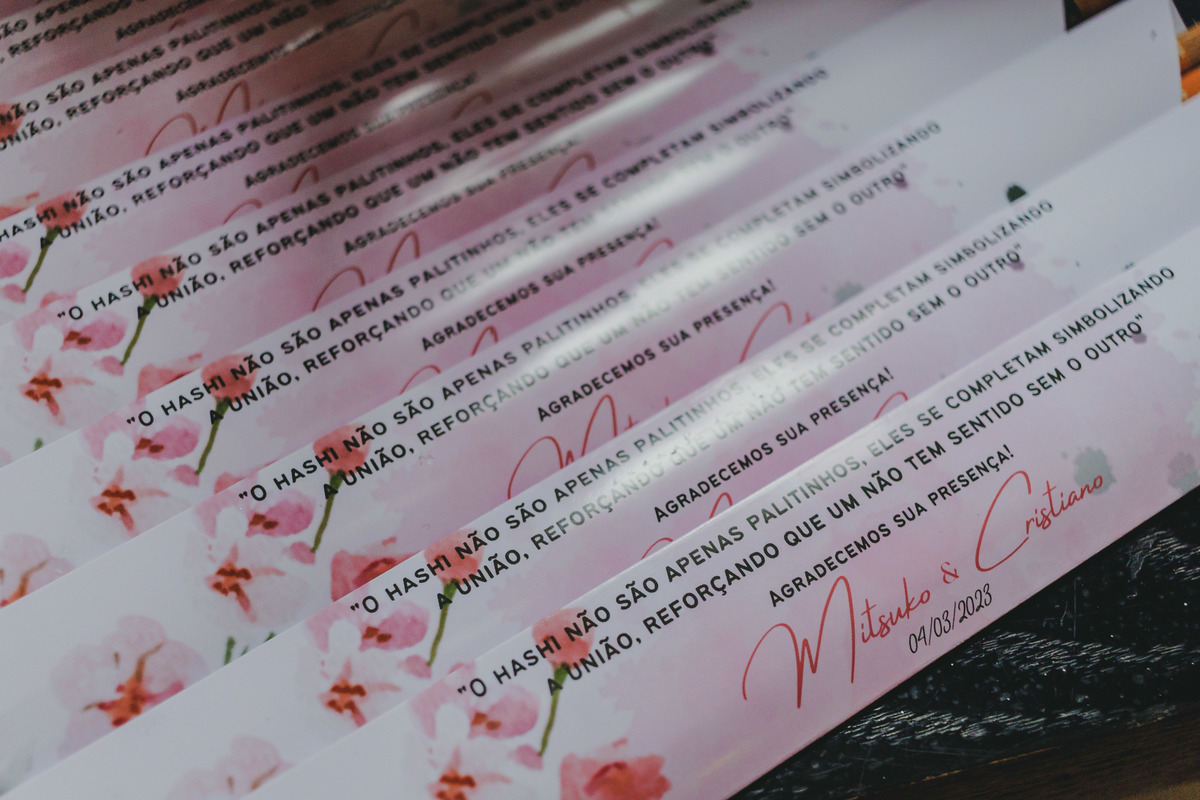 "O HASHI NÃO SÃO APENAS PALITINHOS, ELES SE COMPLETAM SIMBOLIZANDO
A UNIÃO, REFORÇANDO QUE UM NÃO TEM SENTIDO SEM O OUTRO"
AGRADECEMOS SUA PRESENÇA!
Mitsuko & Cristiano
04/03/2023
"O HASHI NÃO SÃO APENAS PALITINHOS, ELES SE COMPLETAM SIMBOLIZANDO
A UNIÃO, REFORÇANDO QUE UM NÃO TEM SENTIDO SEM O OUTRO"
AGRADECEMOS SUA PRESENÇA!
"O HASHI NÃO SÃO APENAS PALITINHOS, ELES SE COMPLETAM SIMBOLIZANDO
A UNIÃO, REFORÇANDO QUE UM NÃO TEM SENTIDO SEM O OUTRO"
AGRADECEMOS SUA PRESENÇA!
"O HASHI NÃO SÃO APENAS PALITINHOS, ELES SE COMPLETAM SIMBOLIZANDO
A UNIÃO, REFORÇANDO QUE UM NÃO TEM SENTIDO SEM O OUTRO"
AGRADECEMOS SUA PRESENÇA!
"O HASHI NÃO SÃO APENAS PALITINHOS, ELES SE COMPLETAM SIMBOLIZANDO
A UNIÃO, REFORÇANDO QUE UM NÃO TEM SENTIDO SEM O OUTRO"
AGRADECEMOS SUA PRESENÇA!
HASHI NÃO SÃO APENAS PALITINHOS, ELES SE COMPLETAM SIMBOLIZANDO
UNIÃO, REFORÇANDO QUE UM NÃO TEM SENTIDO SEM O
AGRADECEMOS SUA PRESENÇA!
NÃO SÃO APENAS PALITINHOS, ELES SE
UNIÃO, REFORÇANDO QUE UM NÃO TEM
AGRADECEMOS